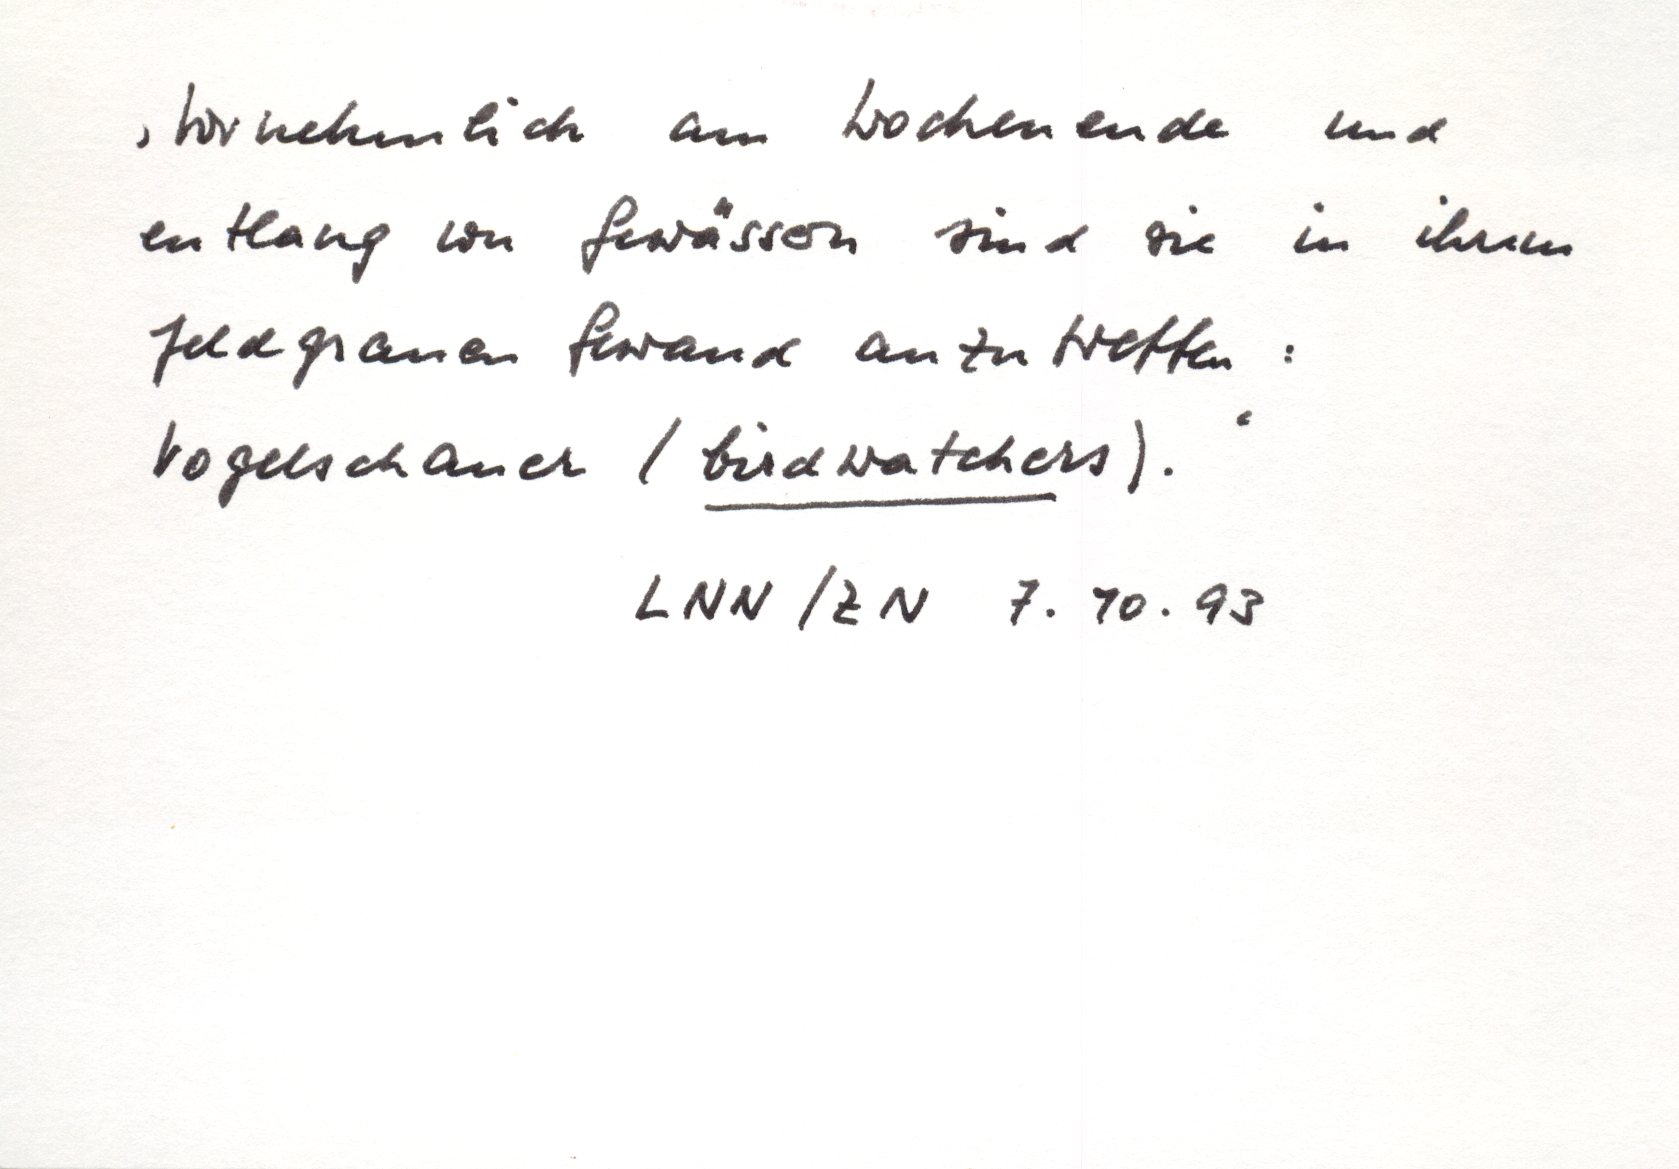 ‚Vornehmlich am Wochenende und
entlang von Gewässern sind sie in ihrem
feldgrauen Gewand anzutreffen:
Vogelschauer (birdwatchers).‘
LNN/ZN 7.10.93